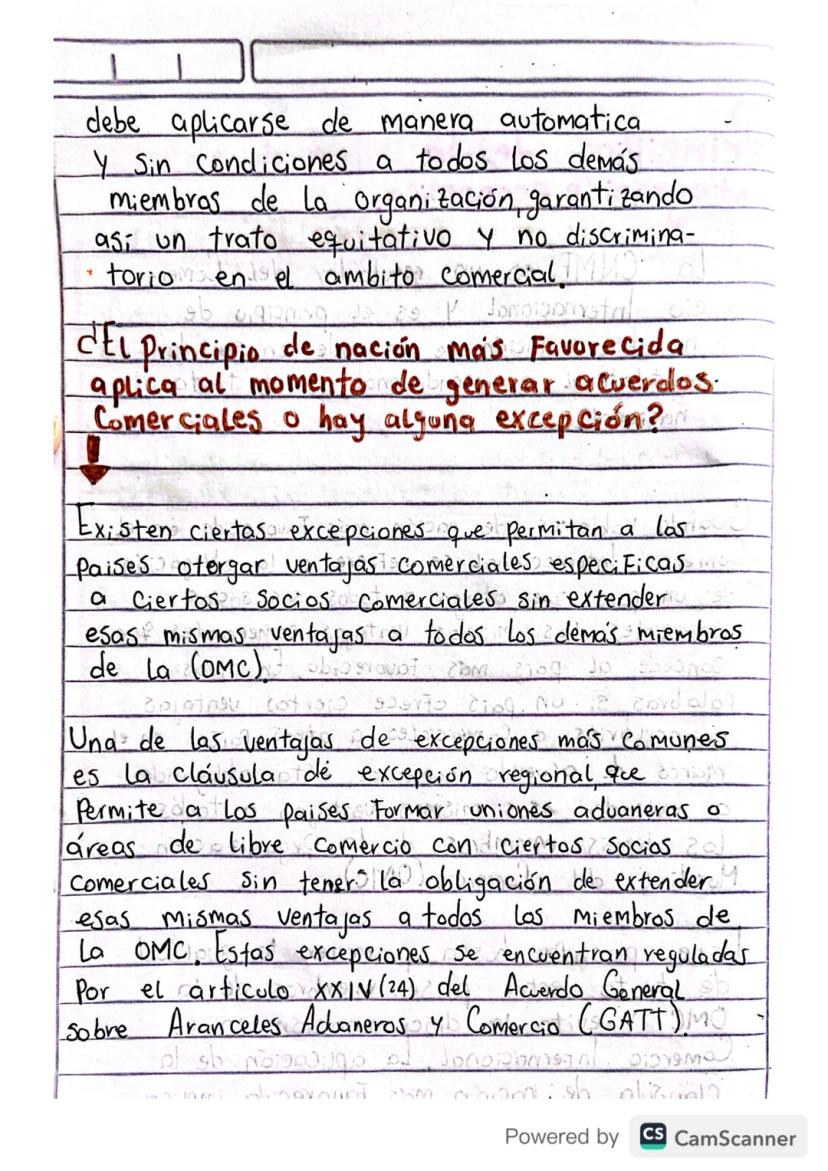 debe aplicarse de manera automatica
y sin condiciones a todos los demás
miembros de la organización, garantizando
asi un trato equitativo y no discrimina-
torio en el ambito comercial.
¿El Principio de nación más Favorecida
aplica al momento de generar acuerdos
Comerciales o hay alguna excepción?
Existen ciertas excepciones que permitan a los
paises otorgar ventajas comerciales especificas
a ciertos socios comerciales sin extender
esas mismas ventajas a todos los demás miembros
de la (OMC).
Una de las ventajas de excepciones más comunes
es la cláusula de excepción regional, que
Permite a los paises Formar uniones aduaneras o
áreas de libre comercio con ciertos socios
comerciales sin tener la obligación de extender
esas mismas ventajas a todos los miembros de
la OMC. Estas excepciones se encuentran reguladas
Por el artículo XXIV (24) del Acuerdo General
sobre Aranceles Aduaneros y Comercio (GATT).
Powered by CS CamScanner